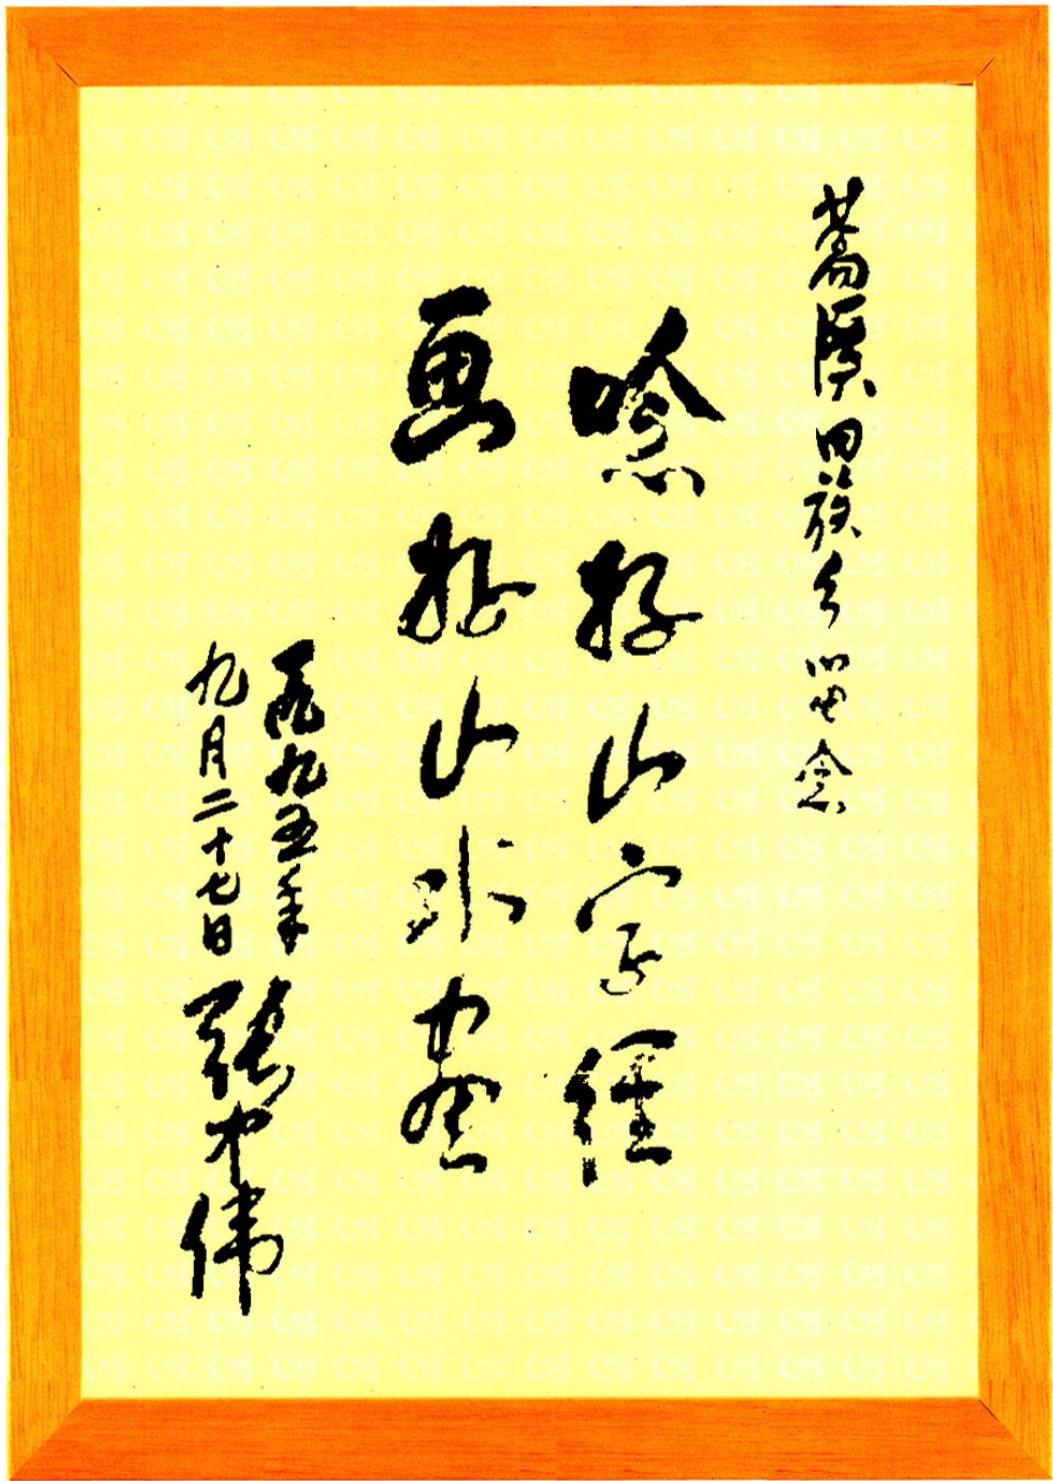 蒿溪回族乡留念
唸好山字经
画好山水画
一九九五年
九月二十七日 张中伟